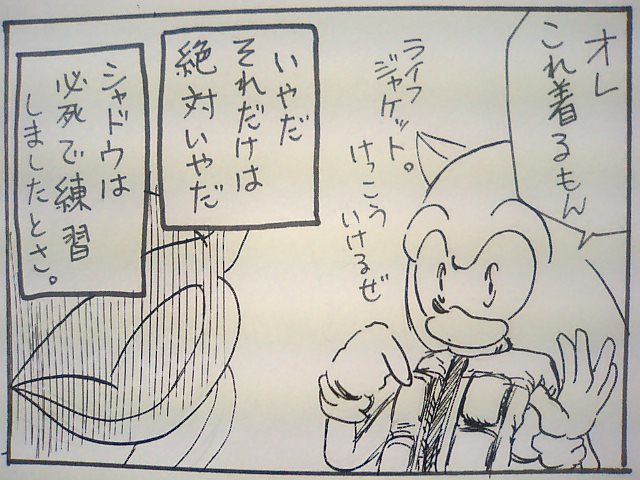 オレ
これ着るもん
ライフ
ジャケット。
けっこう
いけるぜ
いやだ
それだけは
絶対いやだ
シャドウは
必死で練習
しましたとさ。